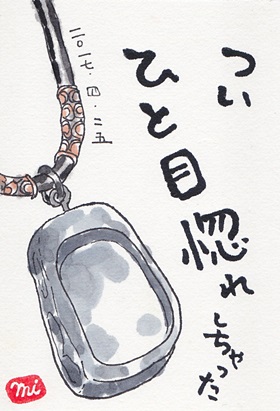 つい
ひと目惚れ
しちゃった
二〇一七.四.二五
mi